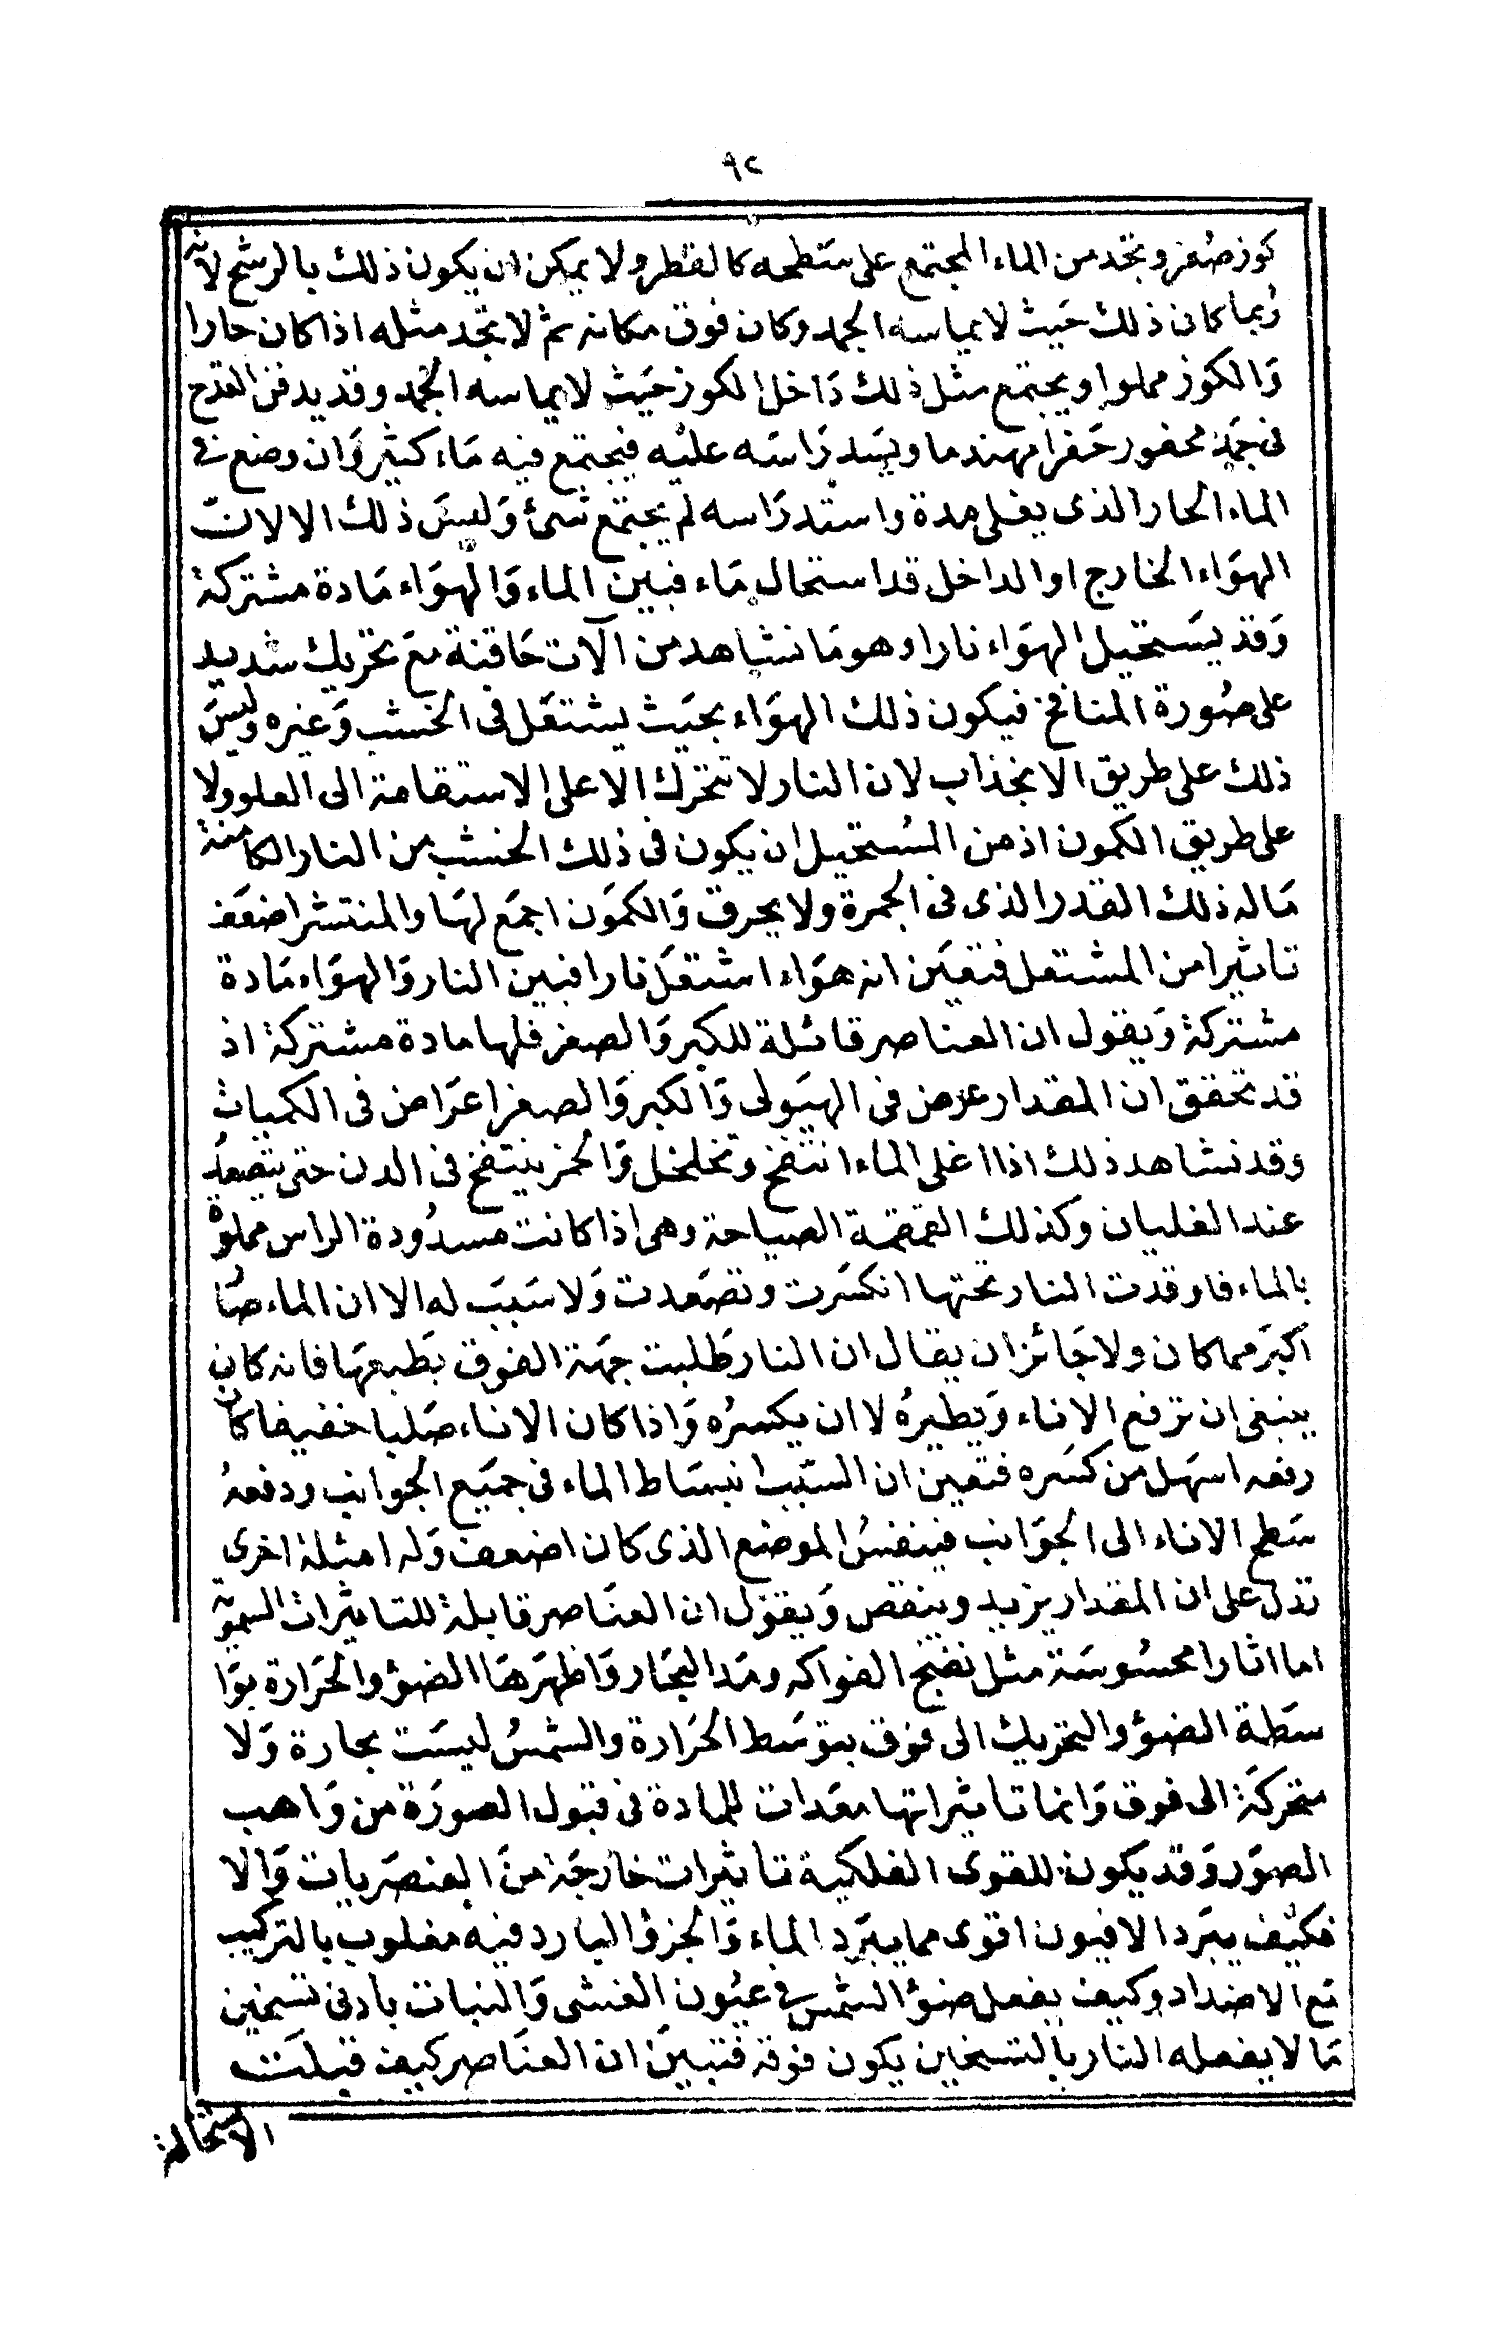 ٩٢
كوز صفر وتجد من الماء المجتمع على سطحه كالقطر ولا يمكن ان يكون ذلك بالرشح لانه
ربما كان ذلك حيث لا يماسه الجمد وكان فوق مكانه ثم لا تجد مثله اذا كان حارا
والكوز مملوا ويجتمع مثل ذلك داخل الكوز حيث لا يماسه الجمد وقد يدفن القدح
فى جمد محفور حفرا مهندما ويسد راسه عليه فيجتمع فيه ماء كثير وان وضع فى
الماء الحار الذى يغلى مدة واستد راسه لم يجتمع شئ وليس ذلك الا لان
الهواء الخارج او الداخل قد استحال ماء فبين الماء والهواء مادة مشتركة
وقد يستحيل الهواء نارا وهو ما نشاهد من آلات حاقنة مع تحريك شديد
على صورة المنافخ فيكون ذلك الهواء بحيث يشتعل فى الخشب وغيره وليس
ذلك على طريق الانجذاب لان النار لا تتحرك الا على الاستقامة الى العلو ولا
على طريق الكمون اذ من المستحيل ان يكون فى ذلك الخشب من النار الكامنة
ما له ذلك القدر الذى فى الجمرة ولا يحرق والكمون اجمع لها والمنتشر اضعف
تاثيرا من المشتعل فتعين انه هواء اشتعل نارا فبين النار والهواء مادة
مشتركة ويقول ان العناصر قائلة للكبر والصغر فلها مادة مشتركة اذ
قد تحقق ان المقدار عرض فى الهيولى والكبر والصغر اعراض فى الكميات
وقد نشاهد ذلك اذا اغلى الماء انتفخ وتخلخل والخمر ينتفخ فى الدن حتى يتصعد
عند الغليان وكذلك القمقمة الصياحة وهى اذا كانت مسدودة الراس مملوة
بالماء فاوقدت النار تحتها انكسرت وتصعدت ولا سبب له الا ان الماء صا
اكبر مما كان ولا جائز ان يقال ان النار طلبت جهة الفوق بطبعها فانه كان
ينبغى ان ترفع الاناء ويطيره لا ان يكسره واذا كان الاناء صلبا خفيفا كان
رفعه اسهل من كسره فتعين ان السبب انبساط الماء فى جميع الجوانب ودفعه
سطح الاناء الى الجوانب فينفس الموضع الذى كان اضعف وله امثلة اخرى
تدل على ان المقدار يزيد وينقص ويقول ان العناصر قابلة للتاثيرات السموية
اما اثارا محسوسة مثل نضج الفواكه ومد البحار واظهرها الضوء والحرارة بوا
سطة الضوء والتحريك الى فوق بتوسط الحرارة والشمس ليست بحارة ولا
متحركة الى فوق وانما تاثيراتها معدات للمادة فى قبول الصورة من واهب
الصور وقد يكون للقوى الفلكية تاثيرات خارجة من العنصريات والا
فكيف يبرد الافيون اقوى مما يبرد الماء والجزؤ البارد فيه مغلوب بالتركيب
مع الاضداد وكيف يفعل ضوء الشمس فى عيون العشى والنبات بادنى تسخين
ما لا يفعله النار بالتسخين يكون فوقه فتبين ان العناصر كيف قبلت
الاستحالة